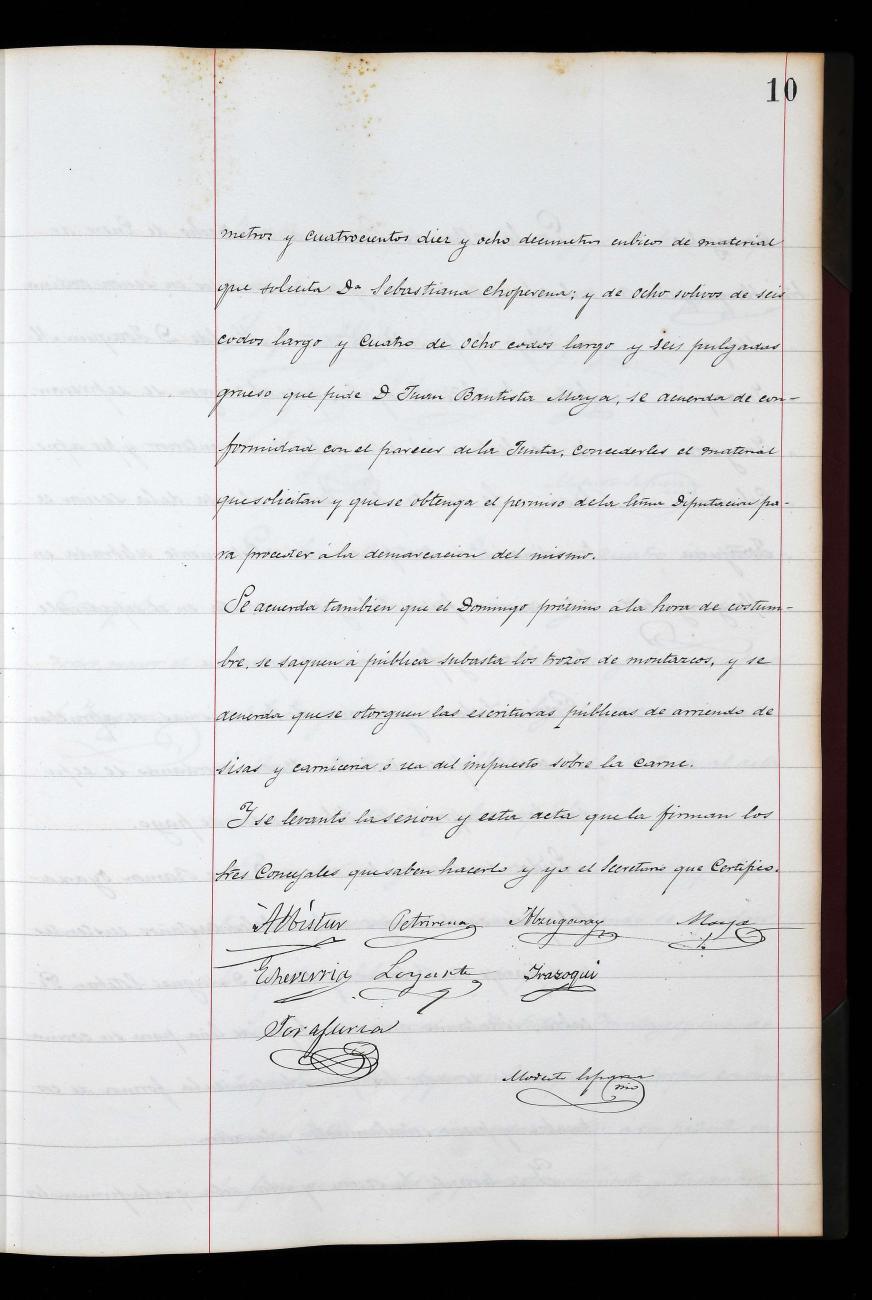 10
metros y cuatrocientos diez y ocho decimetros cubicos de material
que solicita Dª Sebastiana Choperena; y de ocho solivos de seis
codos largo y cuatro de ocho codos largo y seis pulgadas
grueso que pide D Juan Bautista Maya, se acuerda de con-
formidad con el parecer de la Junta, concederles el material
que solicitan y que se obtenga el permiso de la Diputacion pa-
ra proceder á la demarcacion del mismo.
Se acuerda tambien que el Domingo próximo a la hora de costum-
bre, se saquen á pública subasta los trozos de montazcos, y se
acuerda que se otorguen las escrituras públicas de arriendo de
sisas y carniceria ó sea del impuesto sobre la carne.
Y se levanto la sesion y esta acta que la firman los
tres Concejales que saben hacerlo y yo el Secretario que Certifico.
Albistur Petrirena Abzugaray Maya
Echeverria Loyarte Irazoqui
Modesto